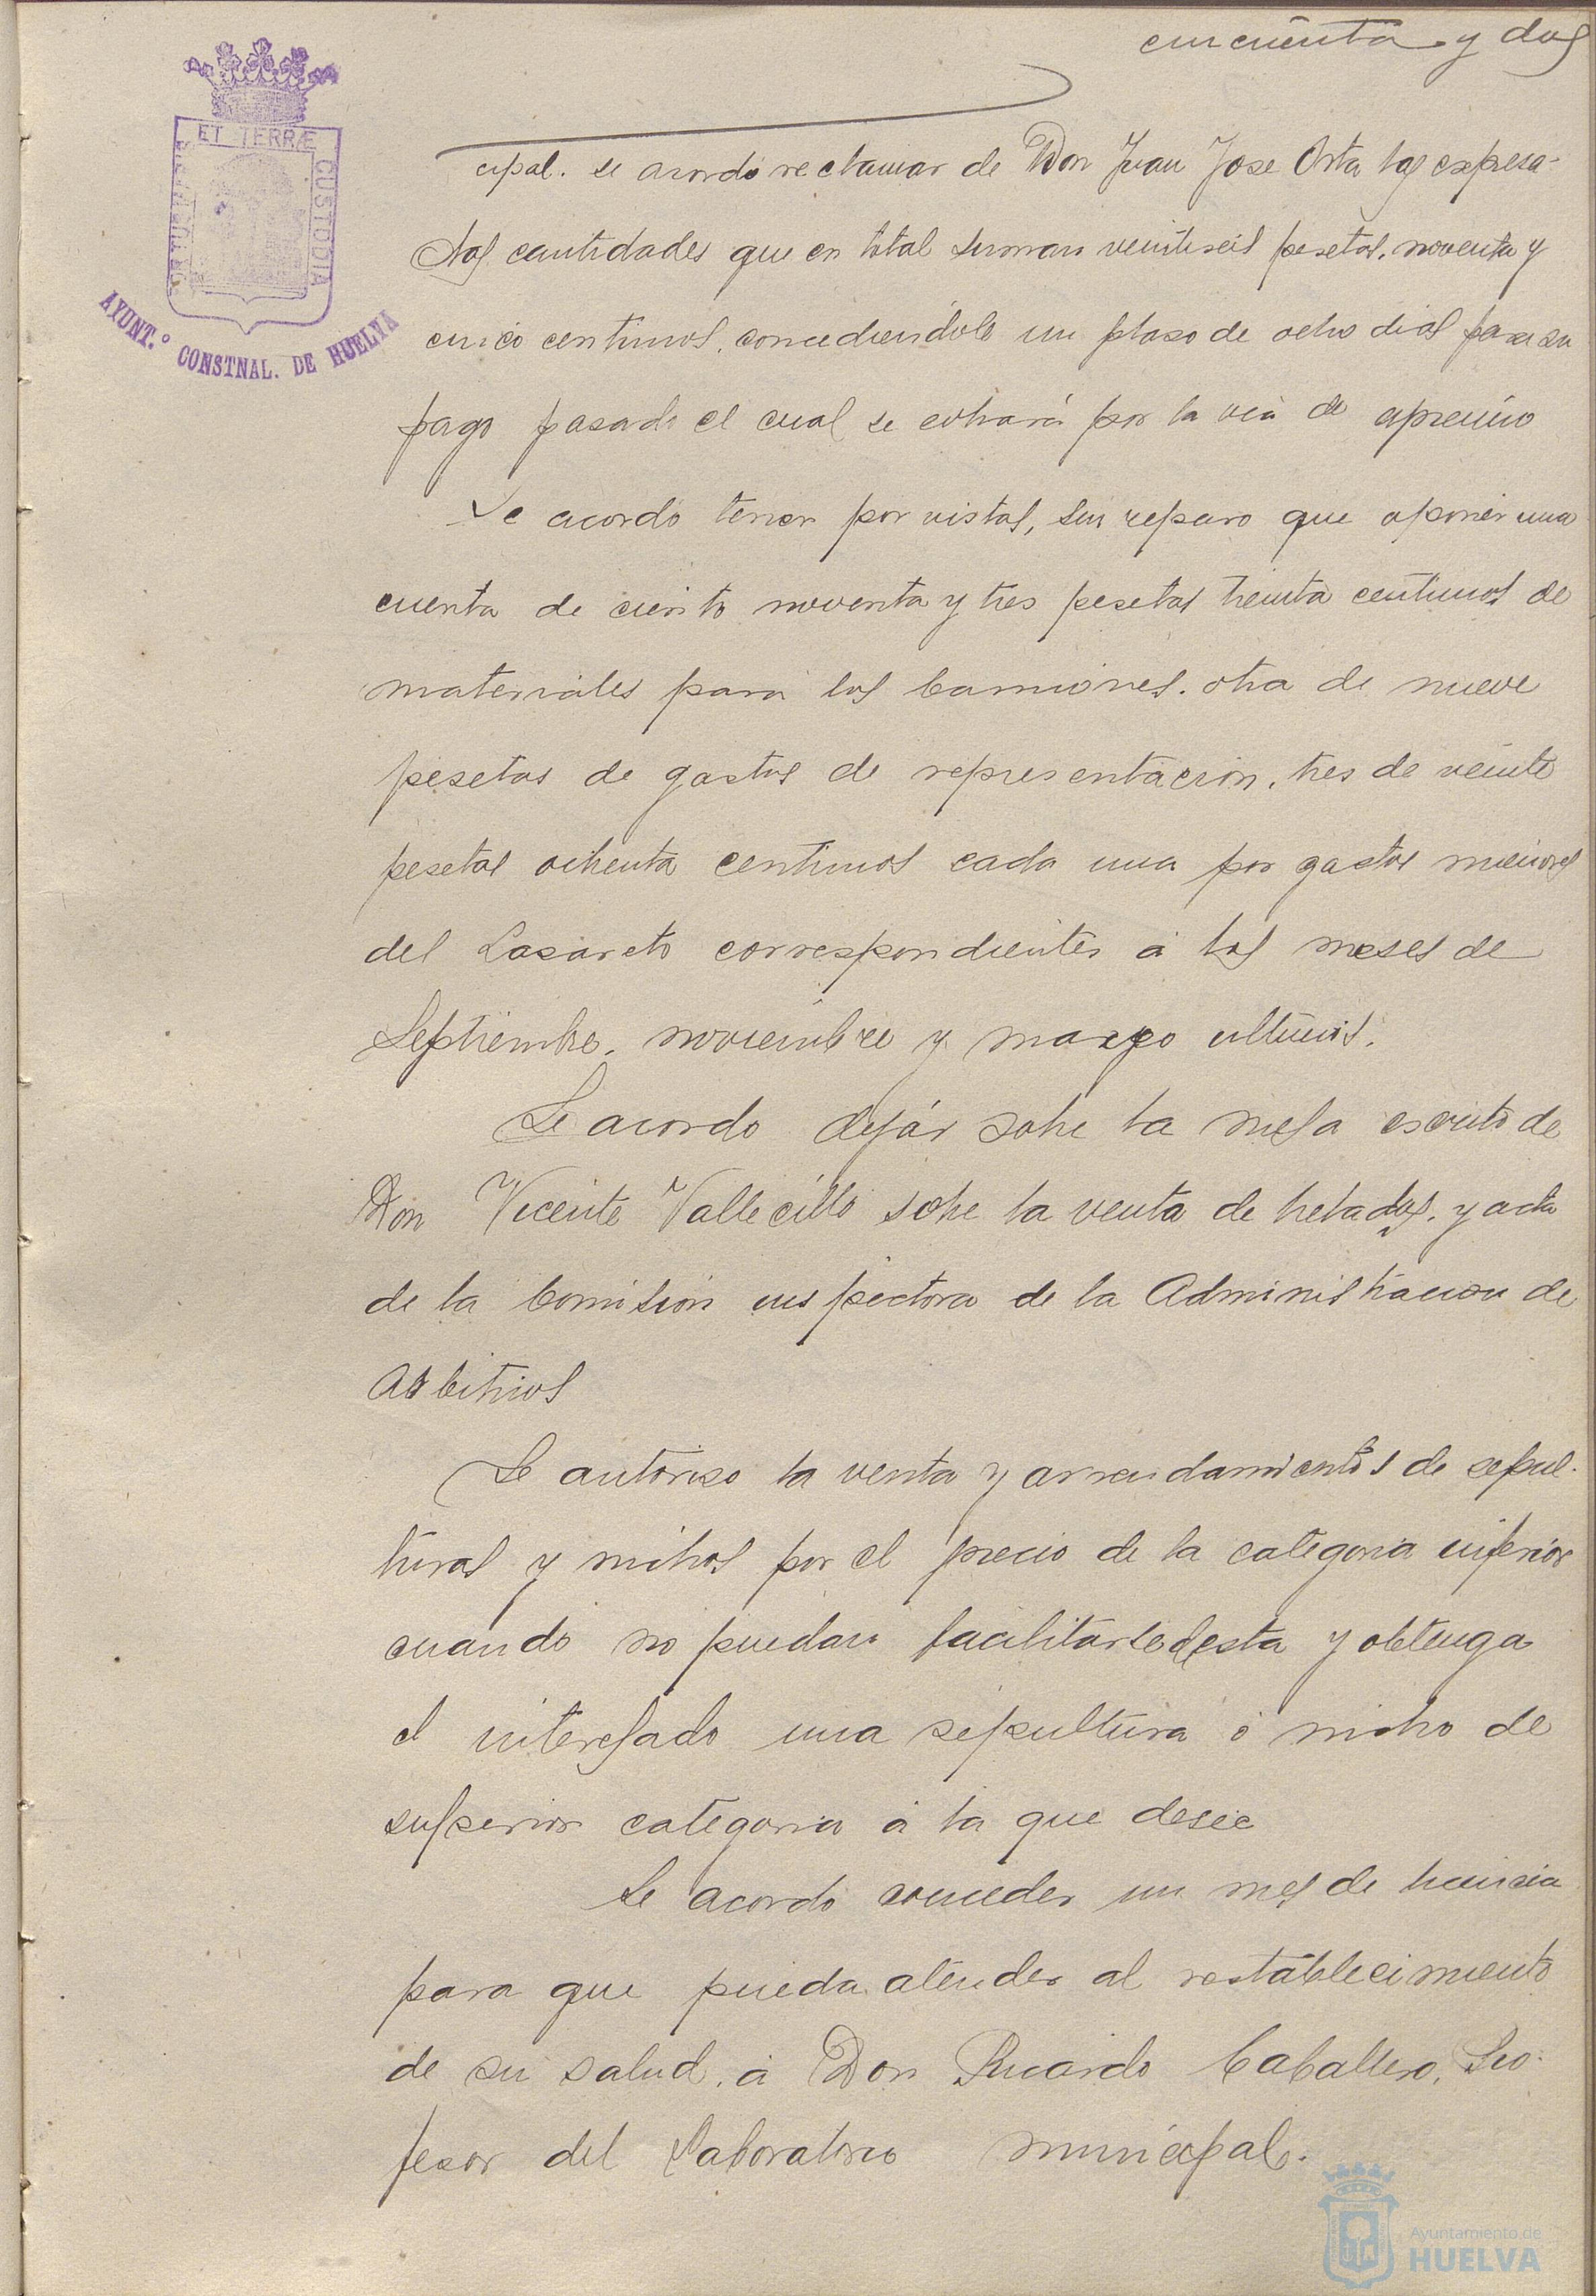 cincuenta y dos
ET TERRÆ
CUSTODIA
AYUNT.º CONSTNAL. DE HUELVA
cipal. se acordó reclamar de Don Juan Jose Orta las expresa-
das cantidades que en total suman veintiseis pesetas, noventa y
cinco centimos, concediendole un plaso de ocho dias para su
pago pasado el cual se cobrará por la via de apremio
Se acordó tener por vistas, sin reparo que oponer una
cuenta de ciento noventa y tres pesetas treinta centimos de
materiales para los camiones. otra de nueve
pesetas de gastos de representación, tres de veinte
pesetas ochenta centimos cada una por gastos menores
del Lasareto correspondientes á los meses de
Septiembre, noviembre y marzo ultimos.
Se acordó dejár sobre la mesa escrito de
Don Vicente Vallecillo sobre la venta de helados. y acta
de la Comisión inspectora de la Administración de
Arbitrios
Se autoriso la venta y arrendamientos de sepul-
turas y nichos por el precio de la categoria inferior
cuando no puedan facilitarse desta y obtenga
el interesado una sepultura ó nicho de
superior categoria á la que desee
Se acordó conceder un mes de licencia
para que pueda atender al restablecimiento
de su salud, á Don Ricardo Caballero, Pro-
fesor del Laboratorio municipal.
Ayuntamiento de
HUELVA